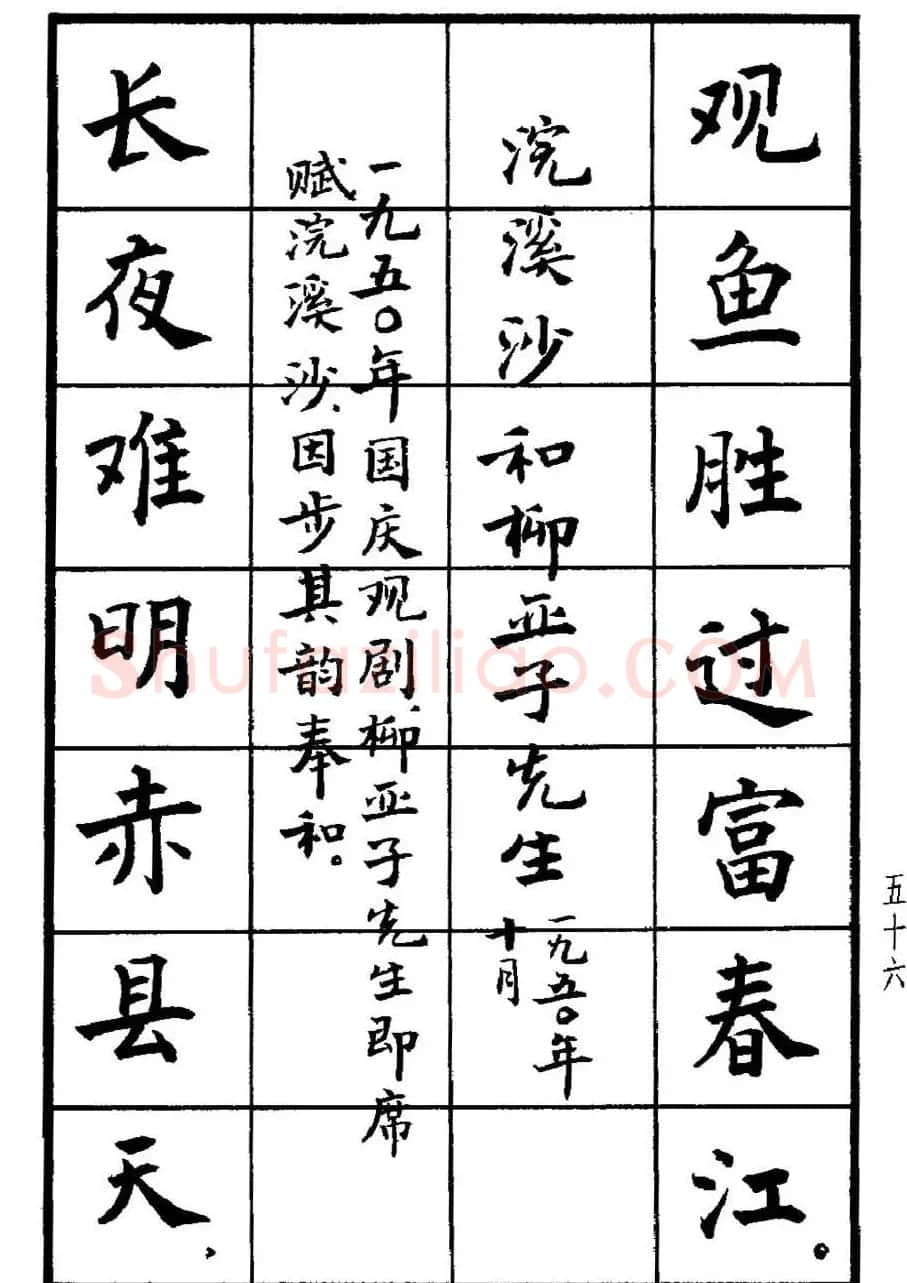 观鱼胜过富春江。
浣溪沙 和柳亚子先生 一九五〇年
十月
一九五〇年国庆观剧，柳亚子先生即席
赋浣溪沙，因步其韵奉和。
长夜难明赤县天，
五十六
Shufaziliao.COM